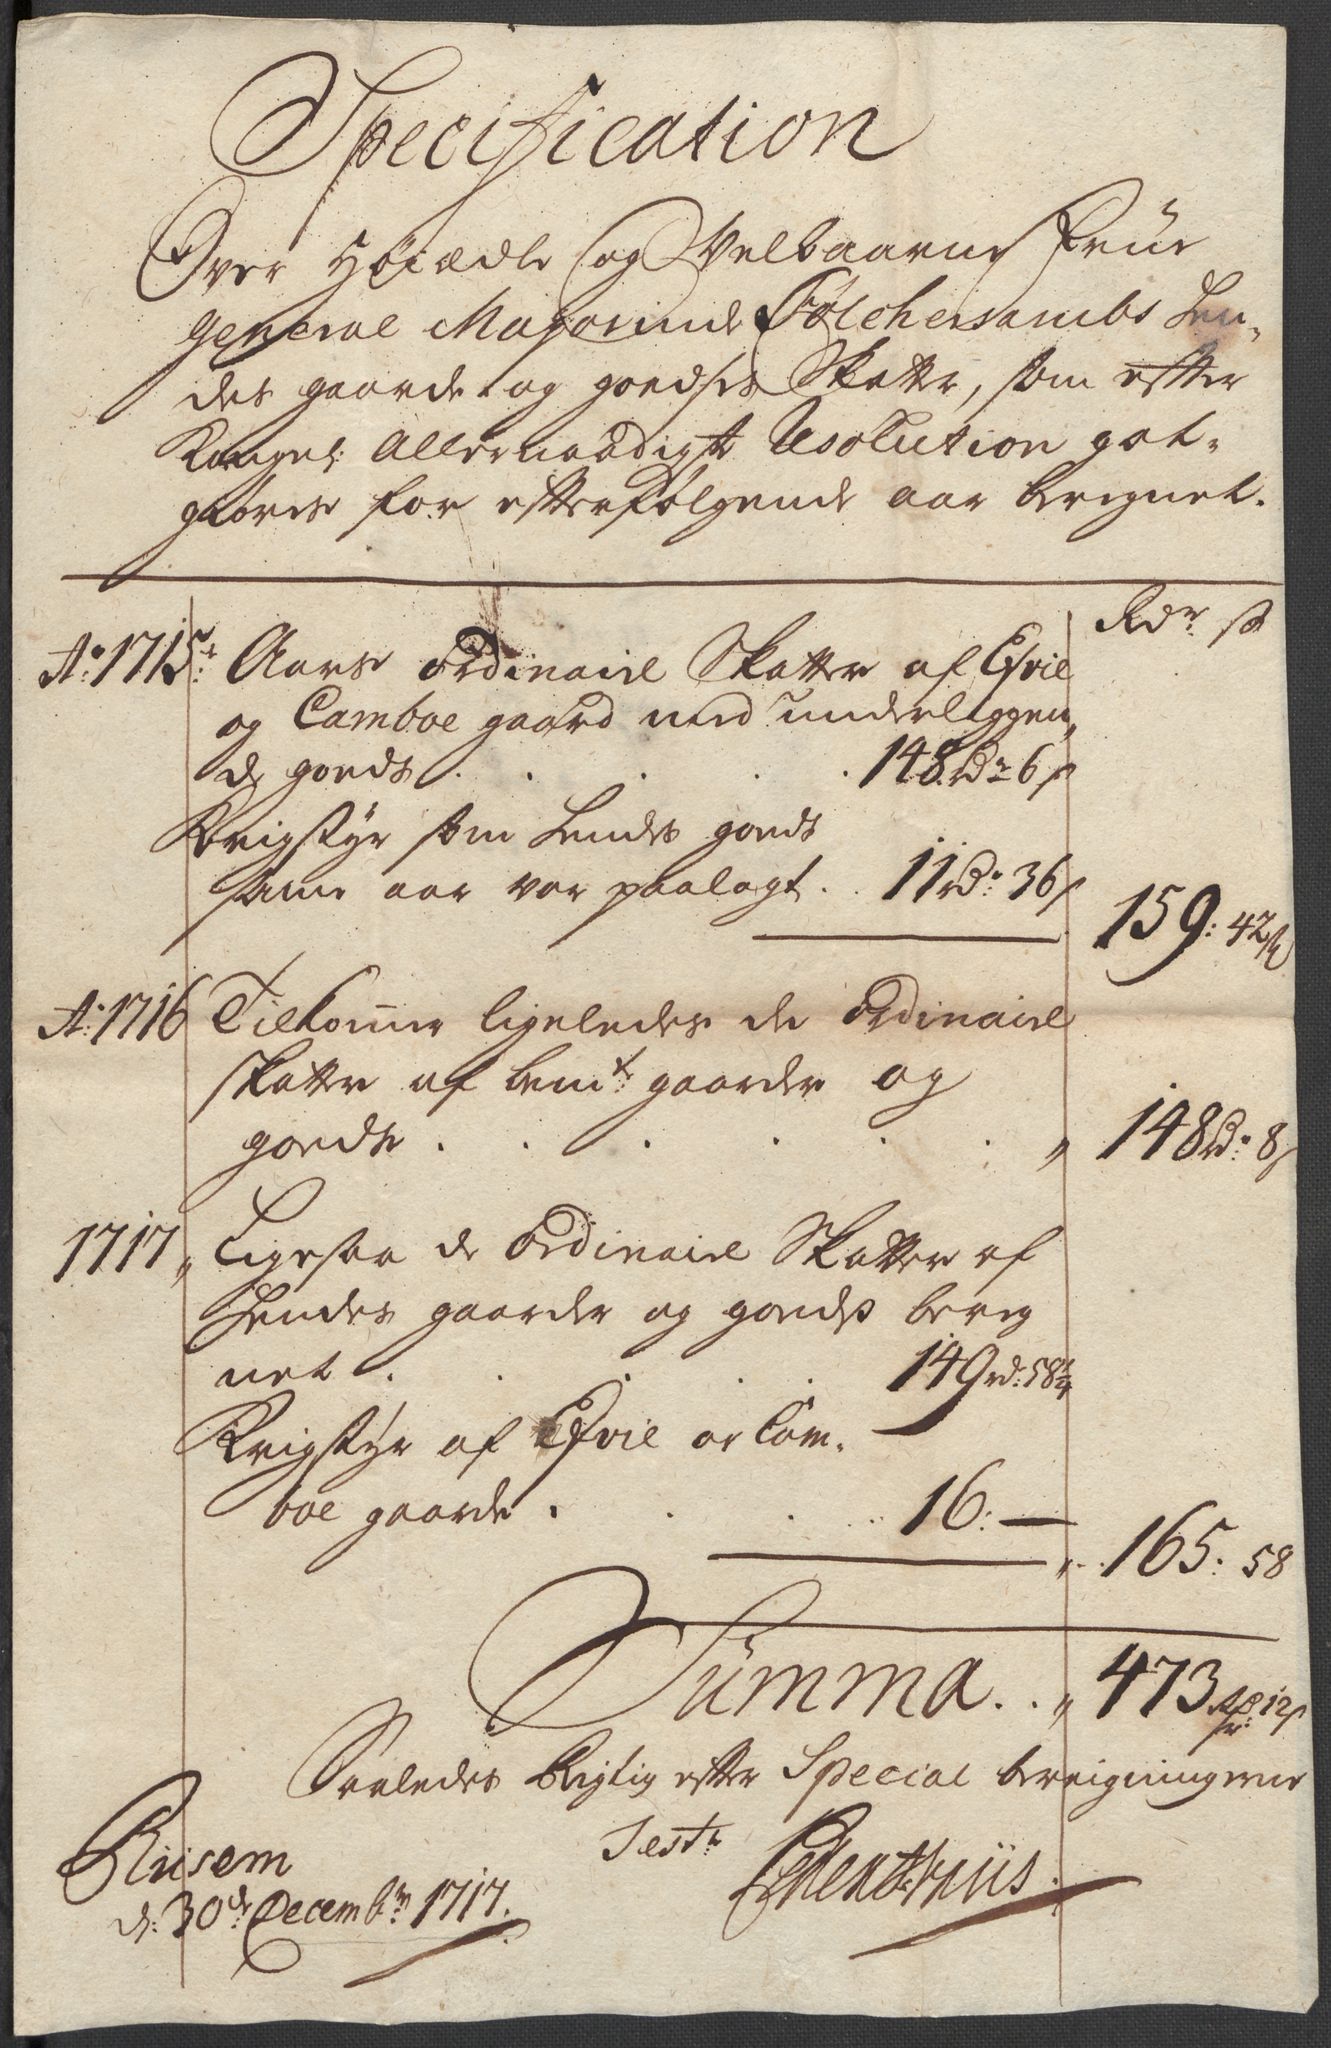 Specification
Over Höiædle og Velbaarne Frue
General Majorinde Tölchersambs Hen-
des gaarde og goedses Skatter, som efter
Kongel: Allernaadigste Resolution got-
giöres for efterfölgende aar beregnet.
Rdr. ß
Ao: 1715: Aars Ordinaire Skatter af Esvil
og Camboe gaard med underliggen-
de goeds . . . . . 148 rdr 6 ß
Krigstyr som Hendes goeds
samme aar var paalagt . . 11 rd: 36 ß
159: 42 ß
Ao: 1716 Tilkommer ligeledes de Ordinaire
skatter af bemt: gaarder og
goeds . . . . . „ 148 rd: 8 ß
1717 „ Ligesaa de Ordinaire Skatter af
Hendes gaarder og goeds bereg
net . . . . . 149 rd: 58 1/4
Krigstyr af Esvil oc Cam-
boe gaarde . . . . . 16: —
„ . . 165: 58
Summa . . „ 473 Rdr: 12 ß
Saaledes Rigtig efter Special beregningerne
Test:
Riisem
d: 30de Decembr: 1717.